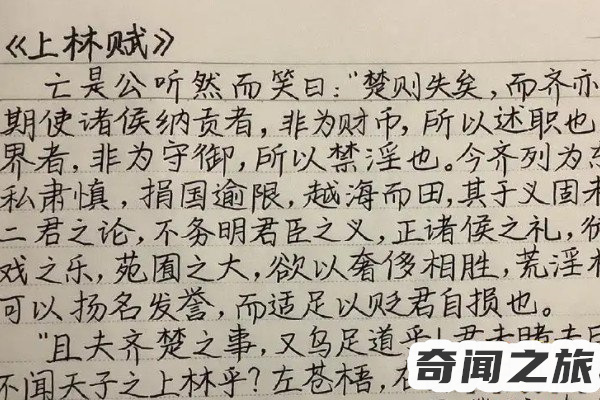 《上林赋》
亡是公听然而笑曰：“楚则失矣，而齐亦
期使诸侯纳贡者，非为财币，所以述职也
界者，非为守御，所以禁淫也。今齐列为东
私肃慎，捐国逾限，越海而田，其于义固未
二君之论，不务明君臣之义，正诸侯之礼，徒
戏之乐，苑囿之大，欲以奢侈相胜，荒淫相
可以扬名发誉，而适足以贬君自损也。
“且夫齐楚之事，又乌足道乎！君未睹夫巨
不闻天子之上林乎？左苍梧，右
奇闻之旅